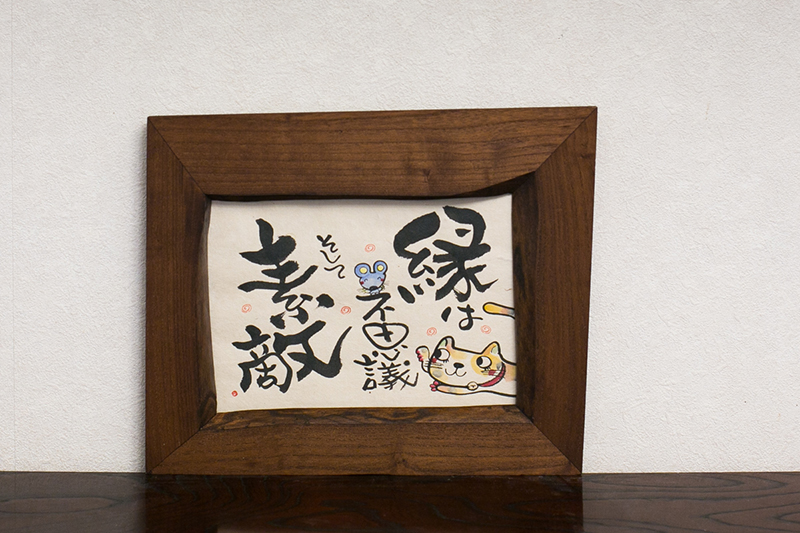 縁は
不思議
そして
素敵